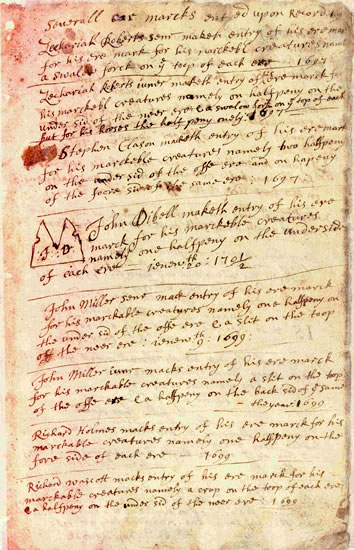 Severall ere marcks entred upon Record
Zechariah Roberts senr maketh entry of his ere marck
for his ere mark for his marckebl creatures namely
a swalow forck on ye top of each ere 1697
Zechariah Roberts iuner maketh entry of his ere marck for
his marckebl creatures namely on halfpeny on the
under sid of the neer ere & a swalow fork on ye top of each ere
but for his horses the half peny onely : 1697
Stephen Clason maketh entry of his ere mark
for his marckeble creatures namely two halfpeny
on the under sid of the offe ere and on hapeny
of the fore side of the same ere : 1697
John Dibell maketh entry of his ere
marck for his marckeble creatures
namely one halfpeny on the underside
of each ere — ienewth 20 : 1701/2
I : D
John Miller senr mack entry of his ere marck
for his markable creatures namely one halfpeny on
the under sid of the offe ere & a slit on the toop
off the neer ere : ienewth 9 : 1699 :
John Miller iunr macks entry of his ere marck
for his markable creatures namely a slit on the top
of the offe ere & a halfpeny on the back sid of ye same
— the year 1699
Richard Holmes macks entry of his ere marck for his
marckable creatures namely one halfpeny on the
fore side of each ere 1699 :
Richard Wascott macks entry of his ere marck for his
markable creatures namely a crop on the toop of each ere
& a halfpeny on the under sid of the neer ere : 1699